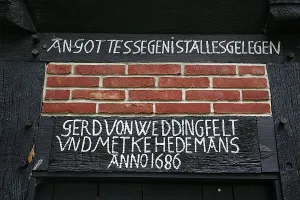 AN GOTTES SEGEN IST ALLES GELEGEN
GERD VON WEDDINGFELT
VND METKE HEDEMANS
ANNO 1686